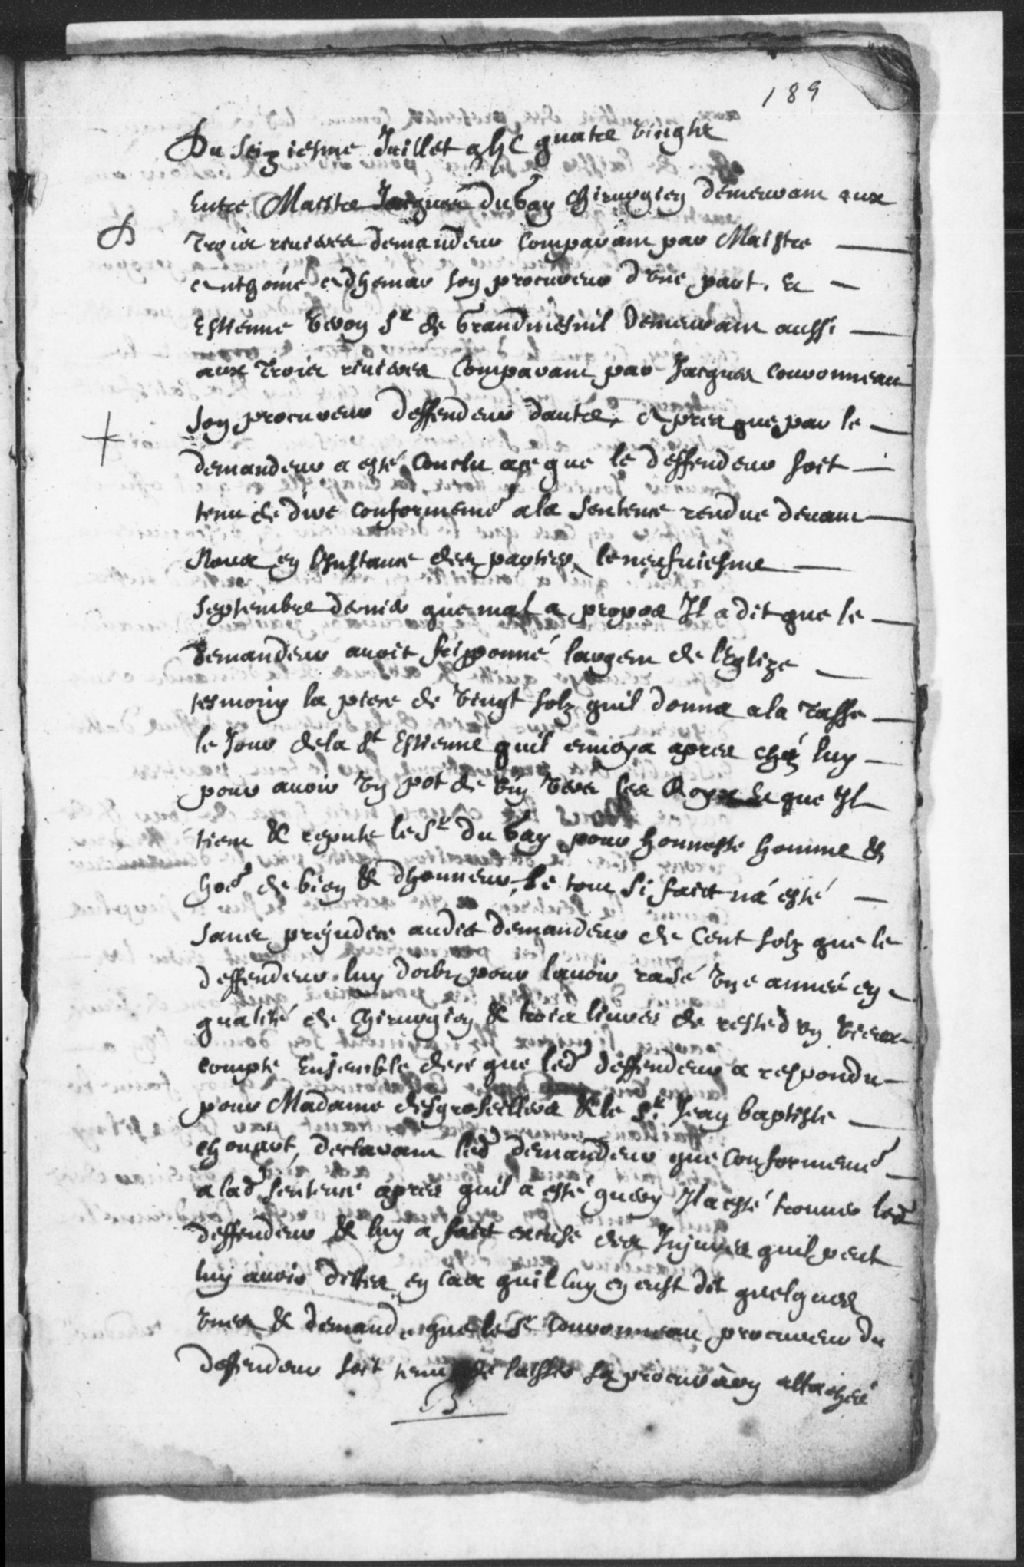 189
Du seiziesme Juillet gbjC quatre vingts
Entre Maistre Jacques duGay chirurgien demeurant aux
Trois rivieres demandeur comparant par Maistre
Anthoine Adhemar son procureur d'une part. Et
Estienne Veron Sr de Grandmesnil demeurant aussi
aux Trois rivieres comparant par Jacques Couronneau
son procureur deffendeur dautre, Apres que par le
demandeur a esté Conclu ace que le deffendeur soit
tenu de dire conformemt ala sentence rendue devant
Nous en lInstance des parties le neufuiesme
septembre dernier que mal a propos Il a dit que le
demandeur avoit friponné largent de lEglize
tesmoing la piece de vingt solz quil donna ala Tasse
le Jour dela St Estienne quil envoya apres chez luy
pour avoir un pot de vin vers les Roys Et que Il
tient & repute le Sr du Gay pour honneste homme &
home de bien & dhonneur, Le tout si fait na esté
sans prejudice audit demandeur de Cent solz que le
deffendeur luy doibt pour lavoir rasé une année en
qualité de chirurgien & trois livres de reste dun vieux
compte Ensemble dece que led deffendeur a respondu
pour Madame desgroseillers & le Sr Jean baptiste
, declarant led demandeur que conformemt
a lad sentence apres quil a esté guery Il a esté trouver led
deffendeur & luy a fait excuse des Injures quil peut
luy avoir dittes en cas quil luy en eust dit quelques
unes & demande que le Sr Couronneau procureur du
deffendeur soit tenu de laisser sa procuraon attachée